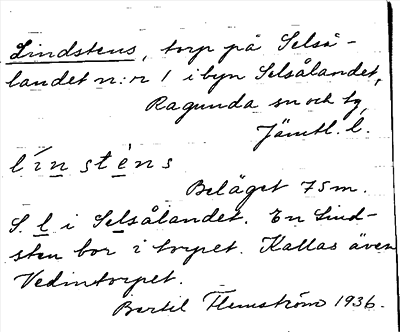 Lindstens, torp på Selså-
landet n:r 1 i byn Selsålandet,
Ragunda sn och tg,
Jämtl. l.
lı́n sténs
Beläget 75 m.
S. l i Selsålandet. En Lind-
sten bor i torpet. Kallas även
Vedintorpet.
Bertil Flemström 1936.